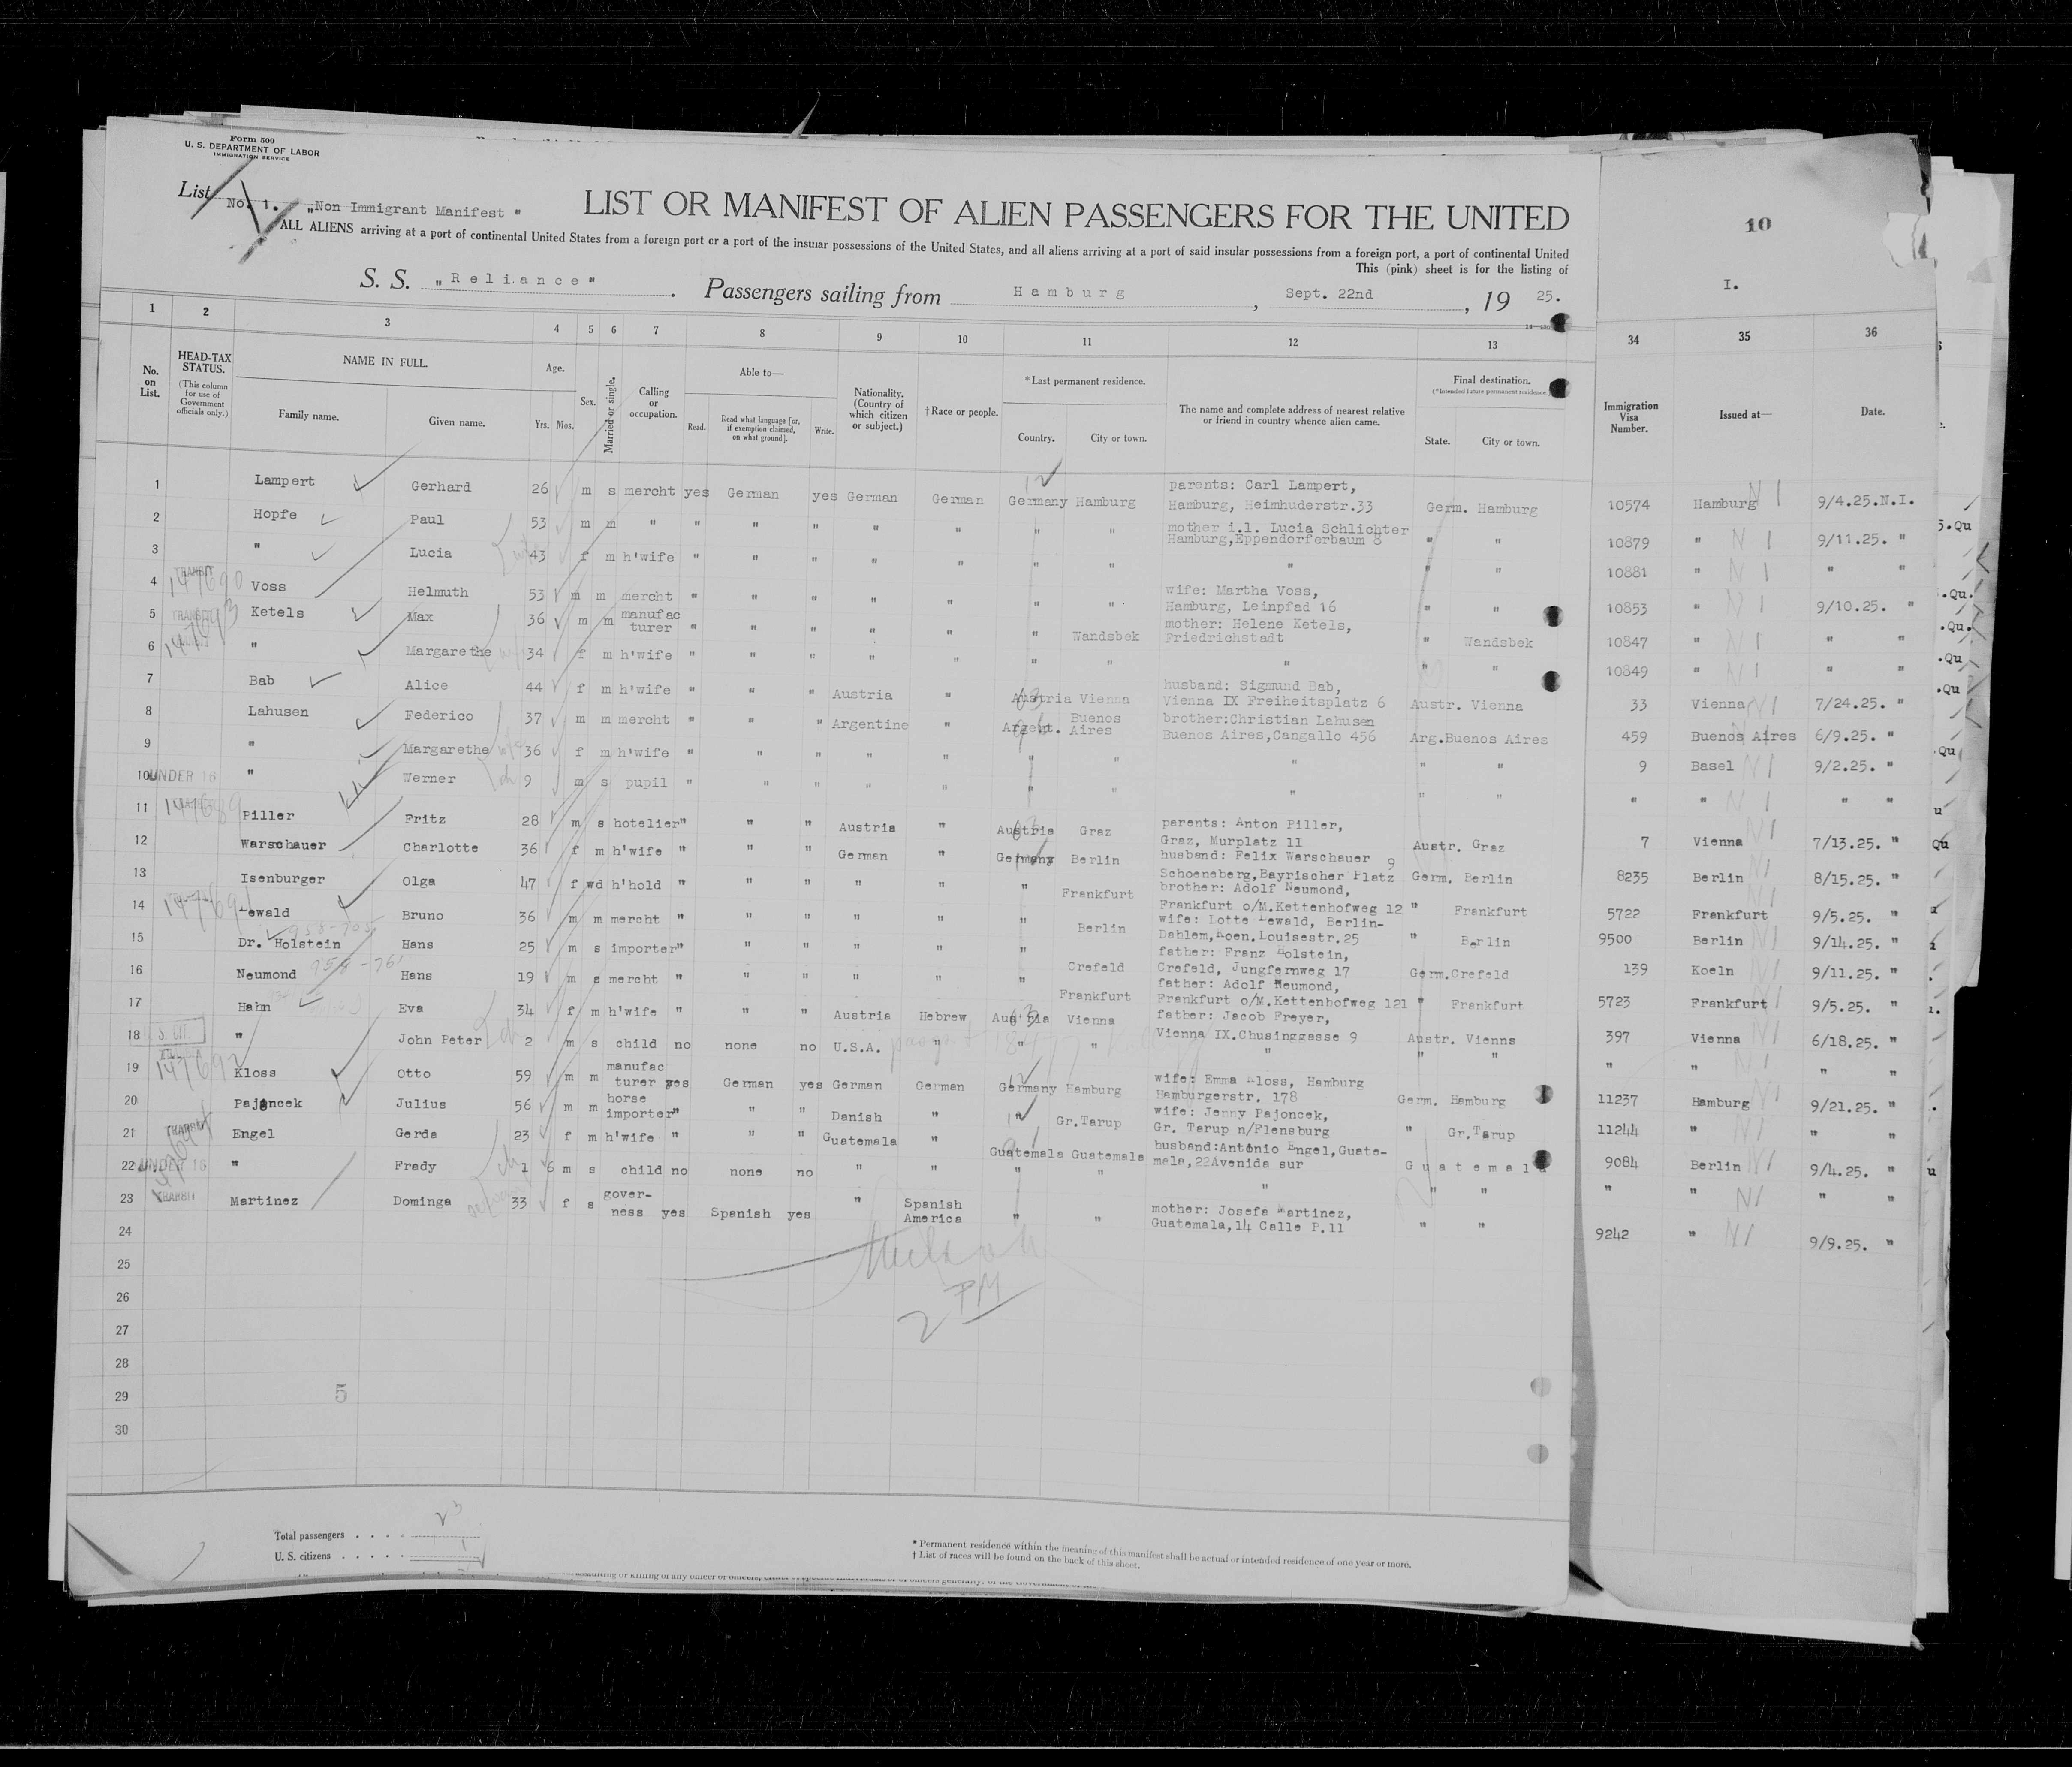 Form 500
U. S. DEPARTMENT OF LABOR
IMMIGRATION SERVICE
List No. 1. „Non Immigrant Manifest"
LIST OR MANIFEST OF ALIEN PASSENGERS FOR THE UNITED
10
ALL ALIENS arriving at a port of continental United States from a foreign port or a port of the insular possessions of the United States, and all aliens arriving at a port of said insular possessions from a foreign port, a port of continental United
This (pink) sheet is for the listing of
S. S. „Reliance" Passengers sailing from Hamburg, Sept. 22nd, 1925.
I.
1 2 3 4 5 6 7 8 9 10 11 12 13 34 35 36
No. on List. HEAD-TAX STATUS. (This column for use of Government officials only.) NAME IN FULL. Family name. Given name. Age. Yrs. Mos. Sex. Married or single. Calling or occupation. Able to— Read. Read what language [or, if exemption claimed, on what ground]. Write. Nationality. (Country of which citizen or subject.) † Race or people. * Last permanent residence. Country. City or town. The name and complete address of nearest relative or friend in country whence alien came. Final destination. (* Intended future permanent residence.) State. City or town. Immigration Visa Number. Issued at— Date.
1 Lampert Gerhard 26 m s mercht yes German yes German German Germany Hamburg parents: Carl Lampert, Hamburg, Heimhuderstr.33 Germ. Hamburg 10574 Hamburg N I 9/4.25.N.I.
2 Hopfe Paul 53 m m " " " " " " " " mother i.l. Lucia Schlichter Hamburg,Eppendorferbaum 8 " " 10879 " N I 9/11.25. "
3 " Lucia wife 43 f m h'wife " " " " " " " " " " 10881 " N I " "
4 TRANSIT 147690 Voss Helmuth 53 m m mercht " " " " " " " wife: Martha Voss, Hamburg, Leinpfad 16 " " 10853 " N I 9/10.25. "
5 TRANSIT Ketels Max 36 m m manufacturer " " " " " " Wandsbek mother: Helene Ketels, Friedrichstadt " Wandsbek 10847 " N I " "
6 " Margarethe wife 34 f m h'wife " " " " " " " " " " 10849 " N I " "
7 Bab Alice 44 f m h'wife " " " Austria " Austria Vienna husband: Sigmund Bab, Vienna IX Freiheitsplatz 6 Austr. Vienna 33 Vienna N I 7/24.25. "
8 Lahusen Federico 37 m m mercht " " " Argentine " Argent. Buenos Aires brother:Christian Lahusen Buenos Aires,Cangallo 456 Arg.Buenos Aires 459 Buenos Aires 6/9.25. "
9 " Margarethe wife 36 f m h'wife " " " " " " " " " " 9 Basel N I 9/2.25. "
10 UNDER 16 " Werner ch 9 m s pupil " " " " " " " " " " " " N I " "
11 147689 Piller Fritz 28 m s hotelier " " " Austria " Austria Graz parents: Anton Piller, Graz, Murplatz 11 Austr. Graz 7 Vienna N I 7/13.25. "
12 Warschauer Charlotte 36 f m h'wife " " " German " Germany Berlin husband: Felix Warschauer 9 Schoeneberg,Bayrischer Platz Germ. Berlin 8235 Berlin N I 8/15.25. "
13 Isenburger Olga 47 f wd h'hold " " " " " " Frankfurt brother: Adolf Neumond, Frankfurt o/M.Kettenhofweg 12 " Frankfurt 5722 Frankfurt N I 9/5.25. "
14 Lewald Bruno 36 m m mercht " " " " " " Berlin wife: Lotte Lewald, Berlin-Dahlem,Koen.Louisestr.25 " Berlin 9500 Berlin N I 9/14.25. "
15 Dr. Holstein Hans 25 m s importer " " " " " " Crefeld father: Franz Holstein, Crefeld, Jungfernweg 17 Germ.Crefeld 139 Koeln N I 9/11.25. "
16 Neumond Hans 19 m s mercht " " " " " " Frankfurt father: Adolf Neumond, Frankfurt o/M.Kettenhofweg 121 " Frankfurt 5723 Frankfurt N I 9/5.25. "
17 Hahn Eva 34 f m h'wife " " " Austria Hebrew Austria Vienna father: Jacob Freyer, Vienna IX.Chusinggasse 9 Austr. Vienna 397 Vienna N I 6/18.25. "
18 S. CIT. " John Peter 2 m s child no none no U.S.A. " " " " " " " " N I " "
19 147692 Kloss Otto 59 m m manufacturer yes German yes German German Germany Hamburg wife: Emma Kloss, Hamburg Hamburgerstr. 178 Germ. Hamburg 11237 Hamburg N I 9/21.25. "
20 Pajoncek Julius 56 m m horse importer " " " Danish " " Gr.Tarup wife: Jenny Pajoncek, Gr. Tarup n/Flensburg " Gr.Tarup 11244 " N I " "
21 TRANSIT Engel Gerda 23 f m h'wife " " " Guatemala " Guatemala Guatemala husband:Antonio Engel,Guatemala,22Avenida sur Guatemala 9084 Berlin N I 9/4.25. "
22 UNDER 16 " Fredy ch 1 6 m s child no none no " " " " " " " " " N I " "
23 TRANSIT Martinez Dominga 33 f s governess yes Spanish yes " Spanish America " " mother: Josefa Martinez, Guatemala,14 Calle P.11 " " 9242 " N I 9/9.25. "
24
25
2 PM
26
27
28
29
5
30
Total passengers . . . . 23
U. S. citizens . . . . . 1
* Permanent residence within the meaning of this manifest shall be actual or intended residence of one year or more.
† List of races will be found on the back of this sheet.